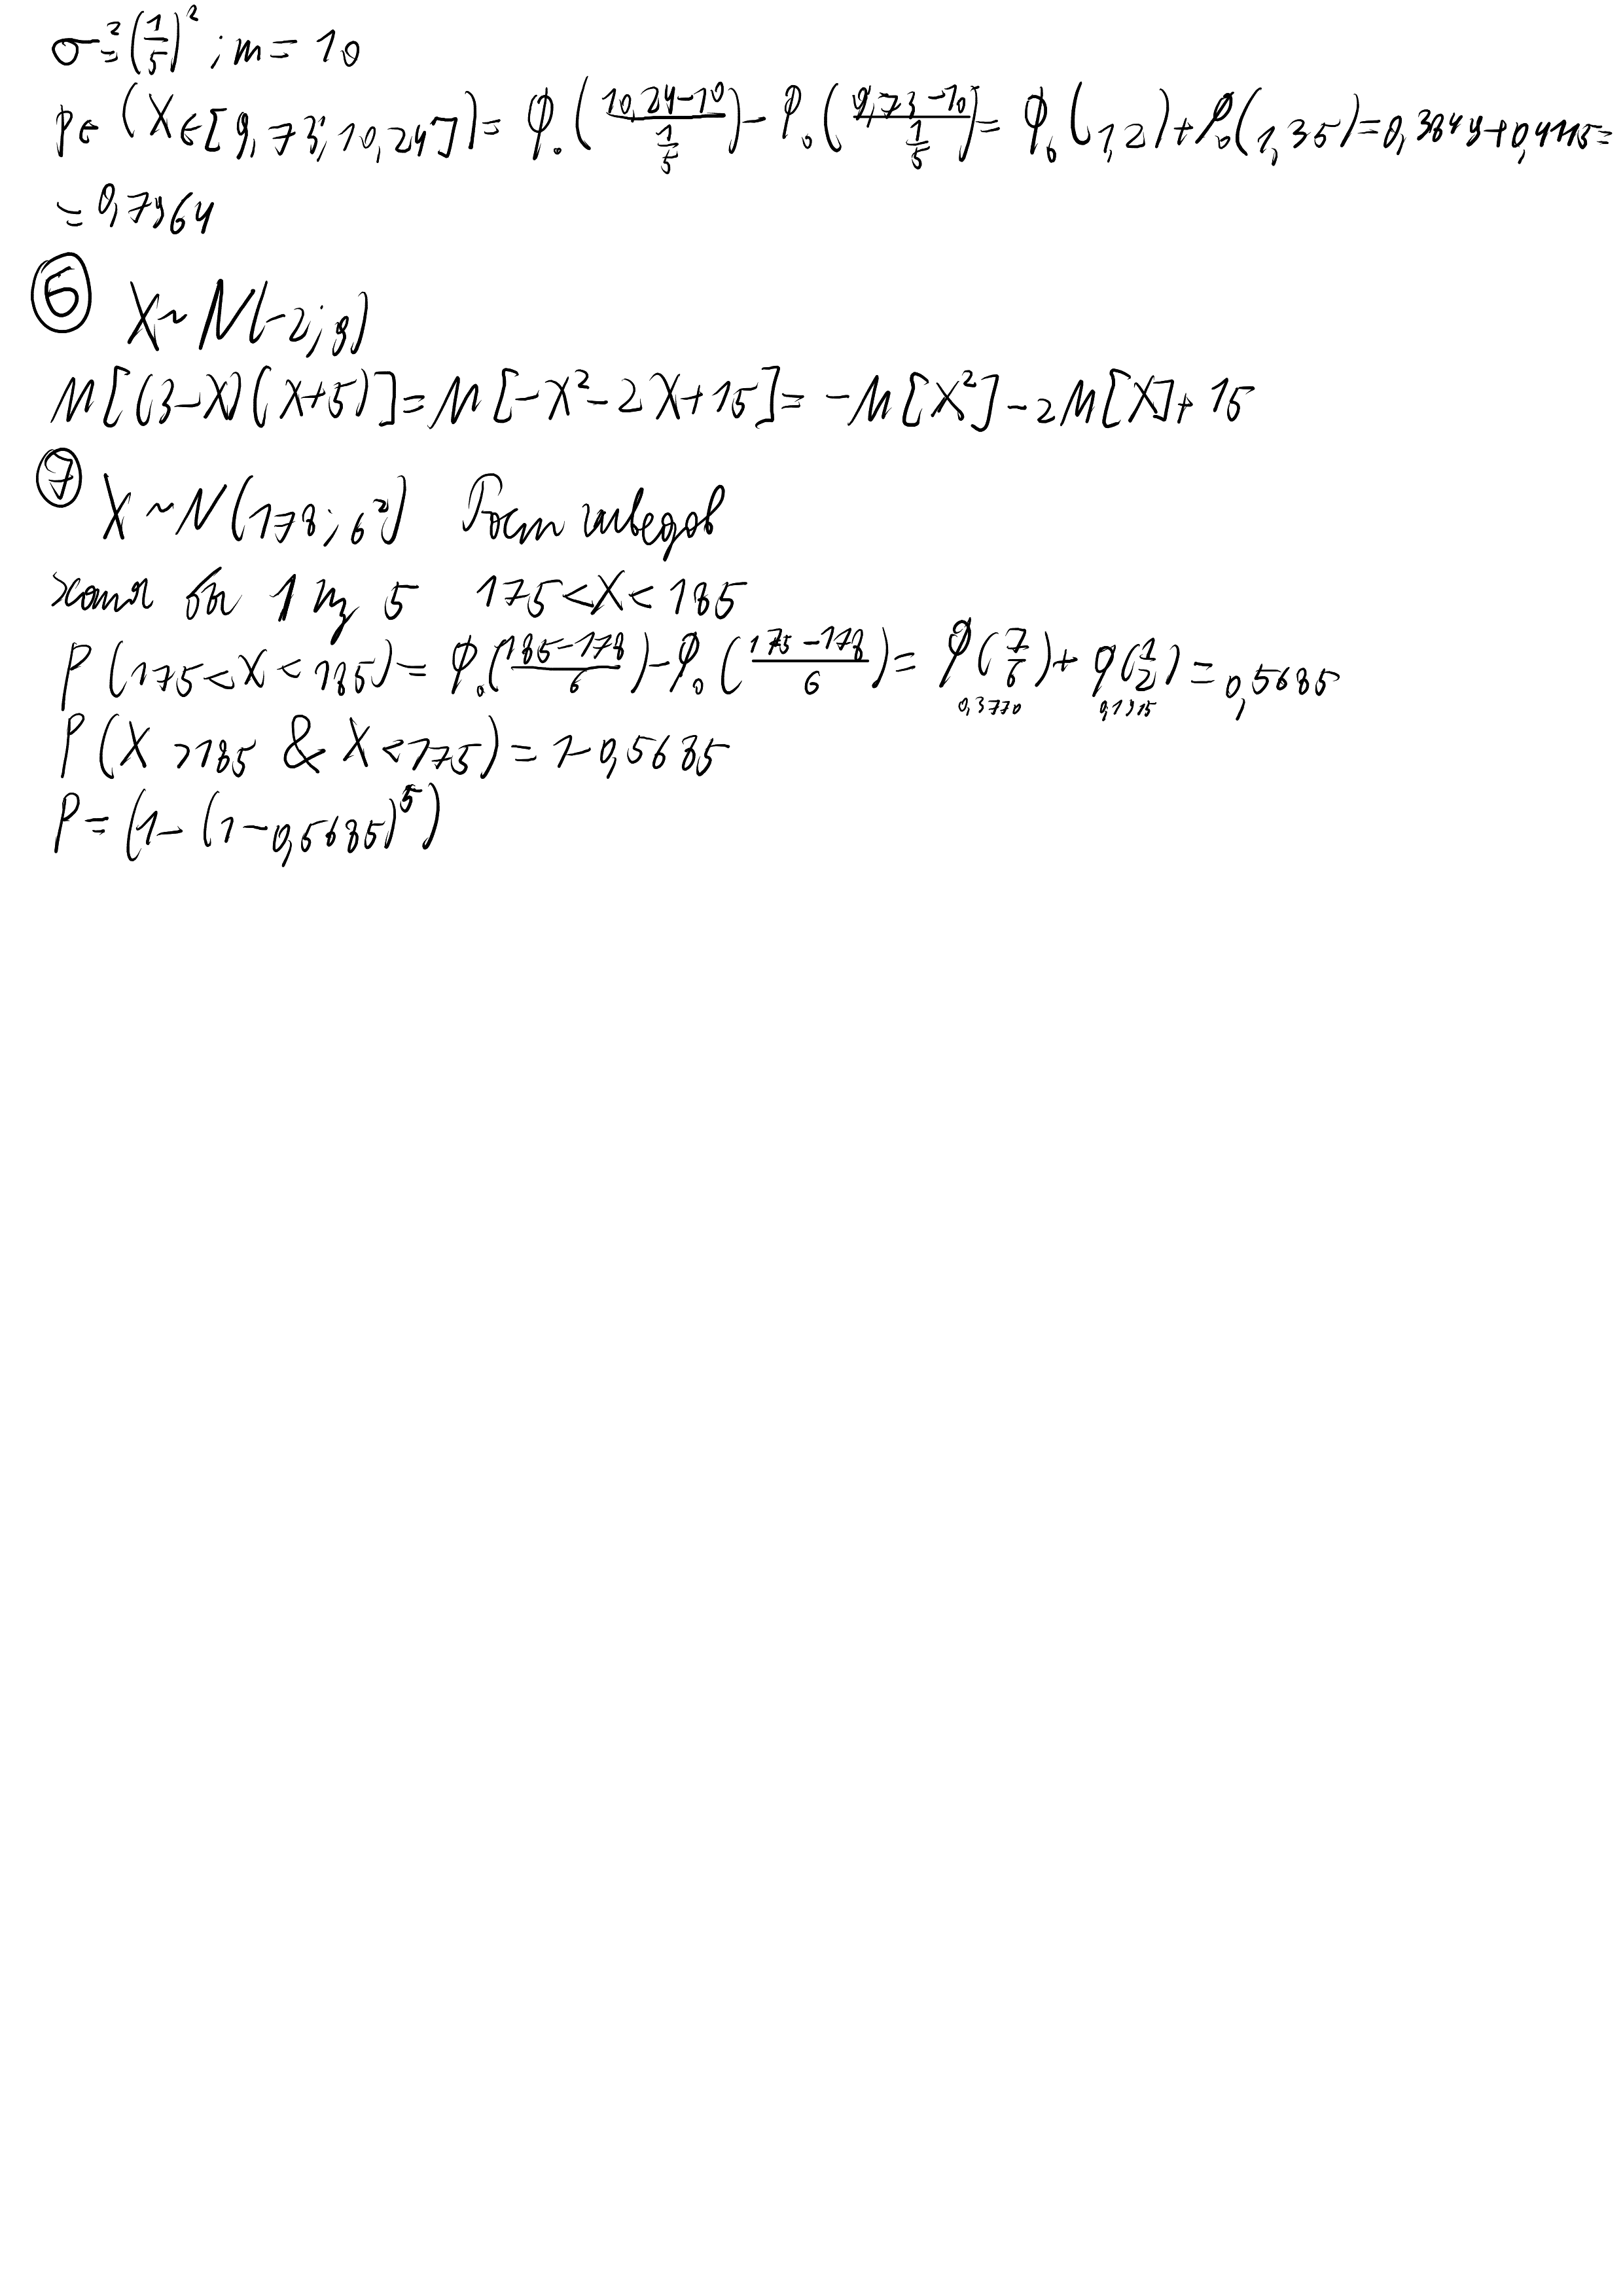 σ² = (1/5)²; m = 10
p∈ (X ∈ [9,73; 10,24]) = Φ₀ ((10,24-10)/(1/5)) - Φ₀ ((9,73-10)/(1/5)) = Φ₀ (1,2) + Φ₀ (1,35) = 0,3849 + 0,4115 =
= 0,7964
⑥ X ~ N(-2; 9)
M[(3-X)(X+5)] = M[-X² - 2X + 15] = -M[X²] - 2M[X] + 15
⑦ X ~ N(178; 6²) Рост шведов
хотя бы 1 из 5 175 < X < 185
P (175 < X < 185) = Φ₀ ((185-178)/6) - Φ₀ ((175-178)/6) = Φ(7/6) + Φ(1/2) = 0,5685
0,3770 0,1915
P (X > 185 & X < 175) = 1 - 0,5685
P = (1 - (1 - 0,5685)⁵)